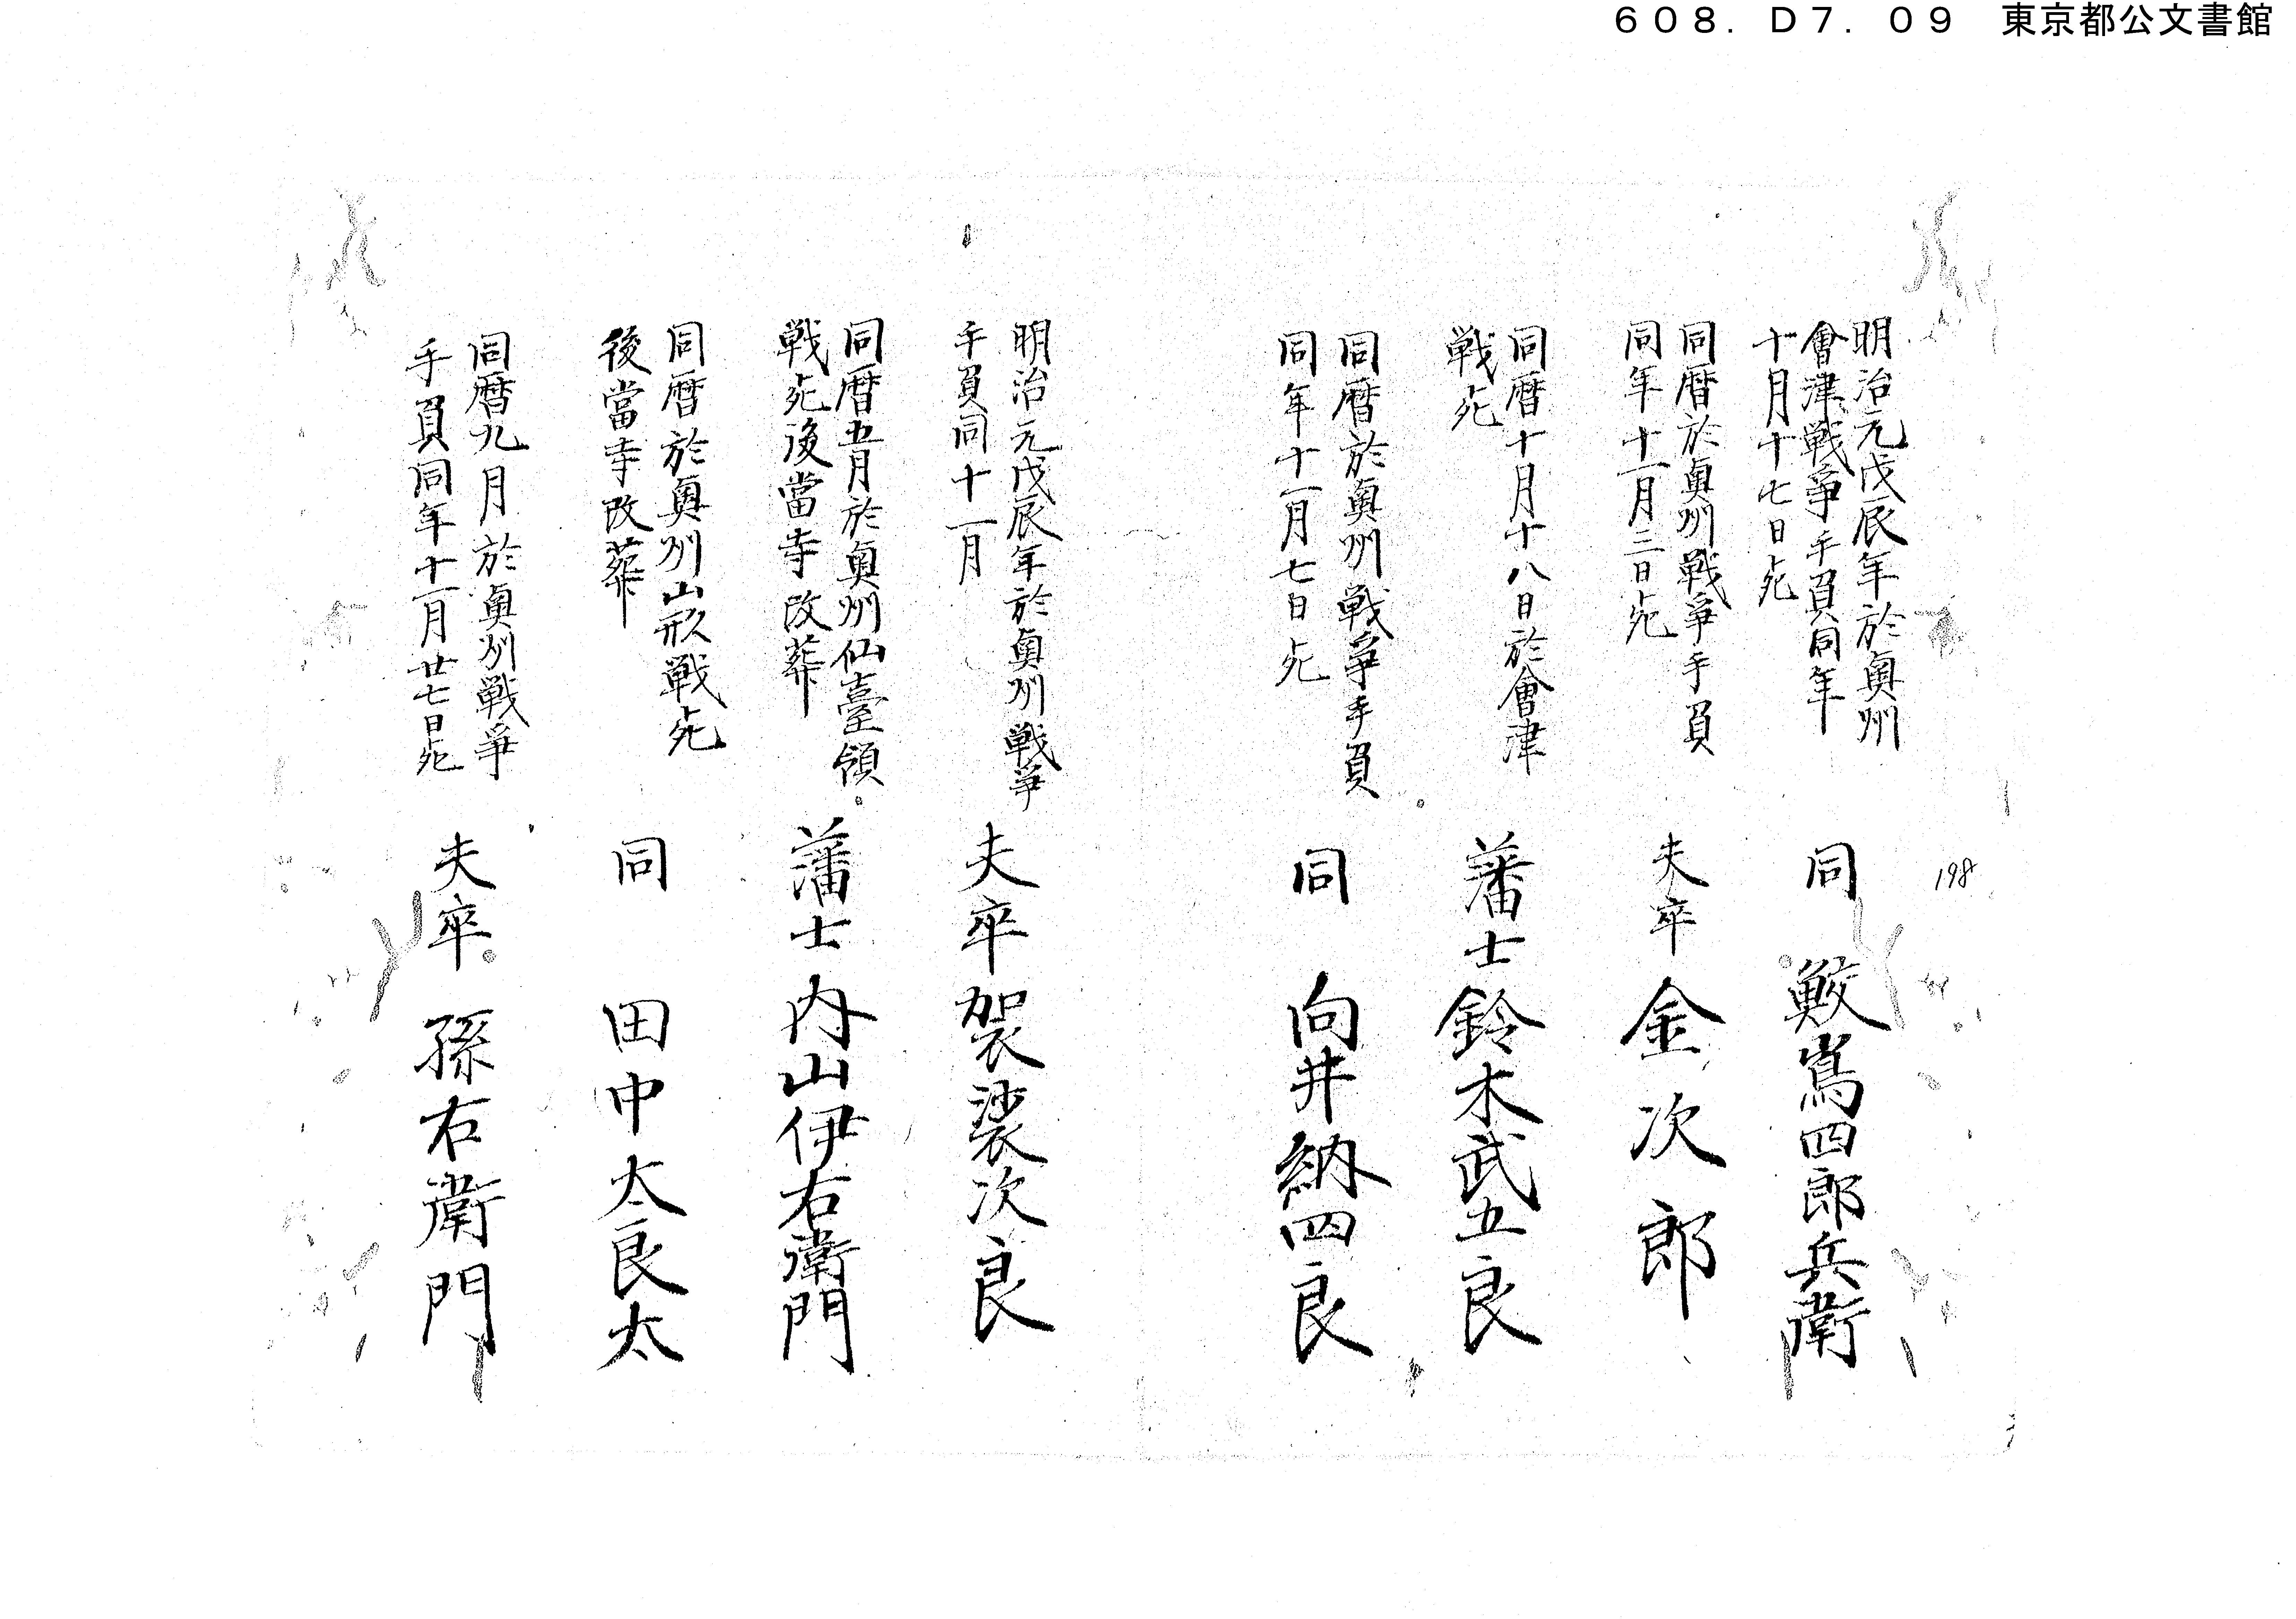 608. D7. 09 東京都公文書館
198
明治元戊辰年於奥州
會津戦爭手負同年
十月十七日死
同 鮫嶌四郎兵衛
同暦於奥州戦爭手負
同年十一月三日死
夫卒 金次郎
同暦十月十八日於會津
戦死
藩士 鈴木武五良
同暦於奥州戦爭手負
同年十一月七日死
同 向井納四良
明治元戊辰年於奥州戦爭
手負同十一月
夫卒 袈裟次良
同暦五月於奥州仙臺領
戦死後當寺改葬
藩士 内山伊右衛門
同暦於奥州山形戦死
後當寺改葬
同 田中太良太
同暦九月於奥州戦爭
手負同年十一月廿七日死
夫卒 孫右衛門